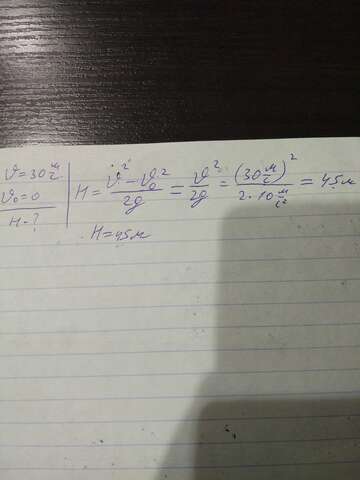 ϑ = 30 м/с
ϑ₀ = 0
H - ?
H = (ϑ² - ϑ₀²)/2g = ϑ²/2g = (30 м/с)²/(2·10 м/с²) = 45 м
H = 45 м